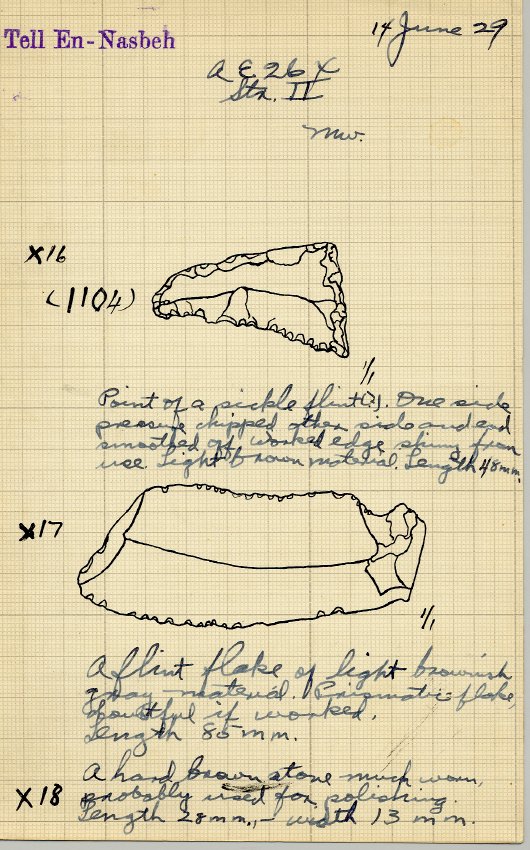 Tell En-Nasbeh
14 June 29
A E 26 X
Str. II
Mw.
X16
(1104)
1/1
Point of a sickle flint(?). One side
pressure chipped other side and end
smoothed off worked edge shiny from
use. Light brown material. Length 48 mm.
X17
1/1
A flint flake of light brownish
gray material. Prismatic flake,
doubtful if worked.
Length 85 mm.
A hard brown stone much worn,
X18
probably used for polishing.
Length 28 mm., - width 13 mm.